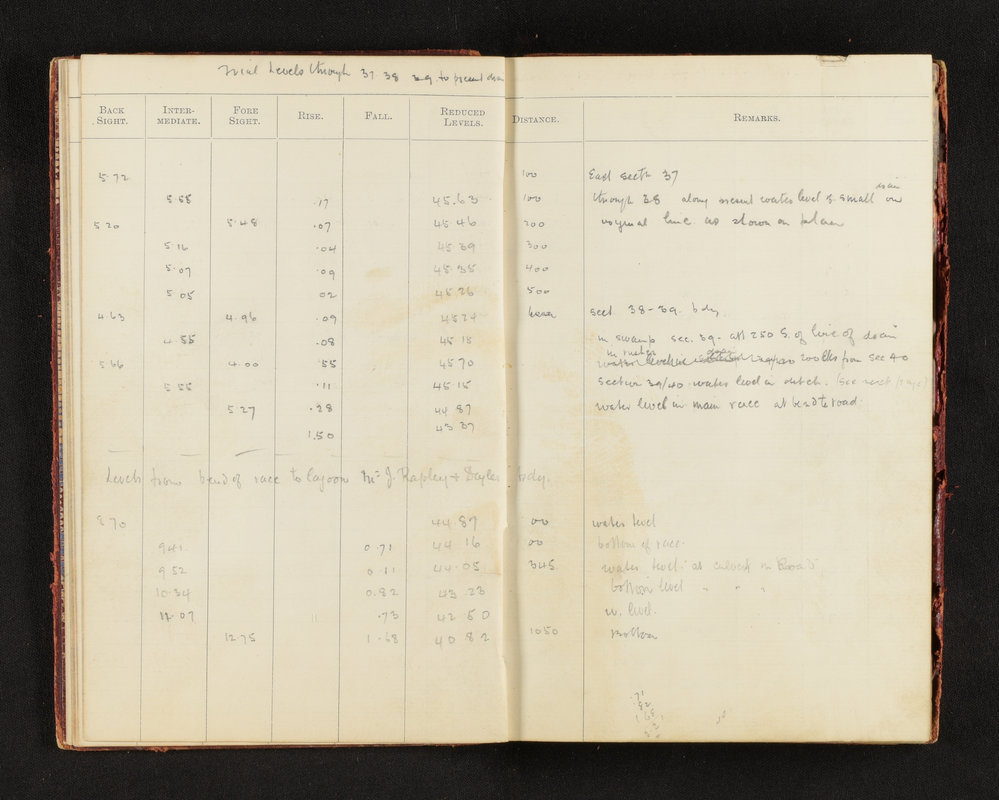 Trial Levels through 37 38 39 to present drain
BACK SIGHT. INTER-MEDIATE. FORE SIGHT. RISE. FALL. REDUCED LEVELS. DISTANCE. REMARKS.
5.72 100 East sectn 37
5.55 .17 45.63 100 through 38 along present water level of small drain on
5.20 5.48 .07 45.46 200 original line as shown on plan
5.16 .04 45.39 300
5.07 .09 45.35 400
5.05 02 45.26 500
4.63 4.96 .09 45.24 sect. 38-39. bdy.
4.55 .08 45.15 in swamp sec. 39. abt 250 S. of line of drain
5.66 4.00 .55 45.70 in water 200 lks from sec 40
5.55 .11 45.15 section 39/40 water level in ditch. (see next page)
5.27 .28 44.87 water level in main race at bend to road.
1.50 43.37
Levels from bend of race to lagoon Mr J. Rapley + bdy.
8.70 44.87 00 water level
9.41 0.71 44.16 00 bottom of race.
9.52 0.11 44.05 345 water level at culvert on Road
10.34 0.82 43.23 bottom level " " "
11.07 .73 42.50 w. level.
12.75 1.68 40.82 1050 Bottom
.71
.82
1.68